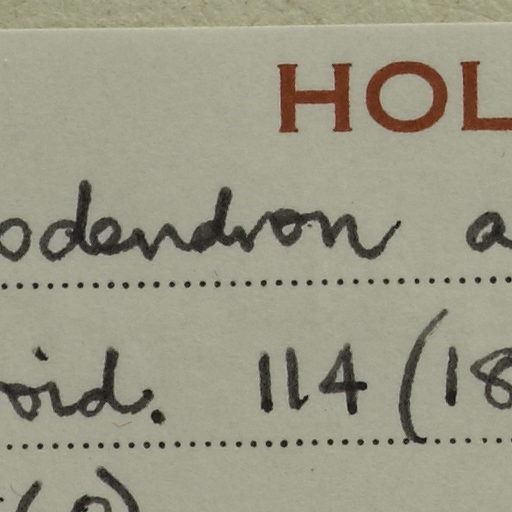 HOL
odendron a
oid. 114 (18